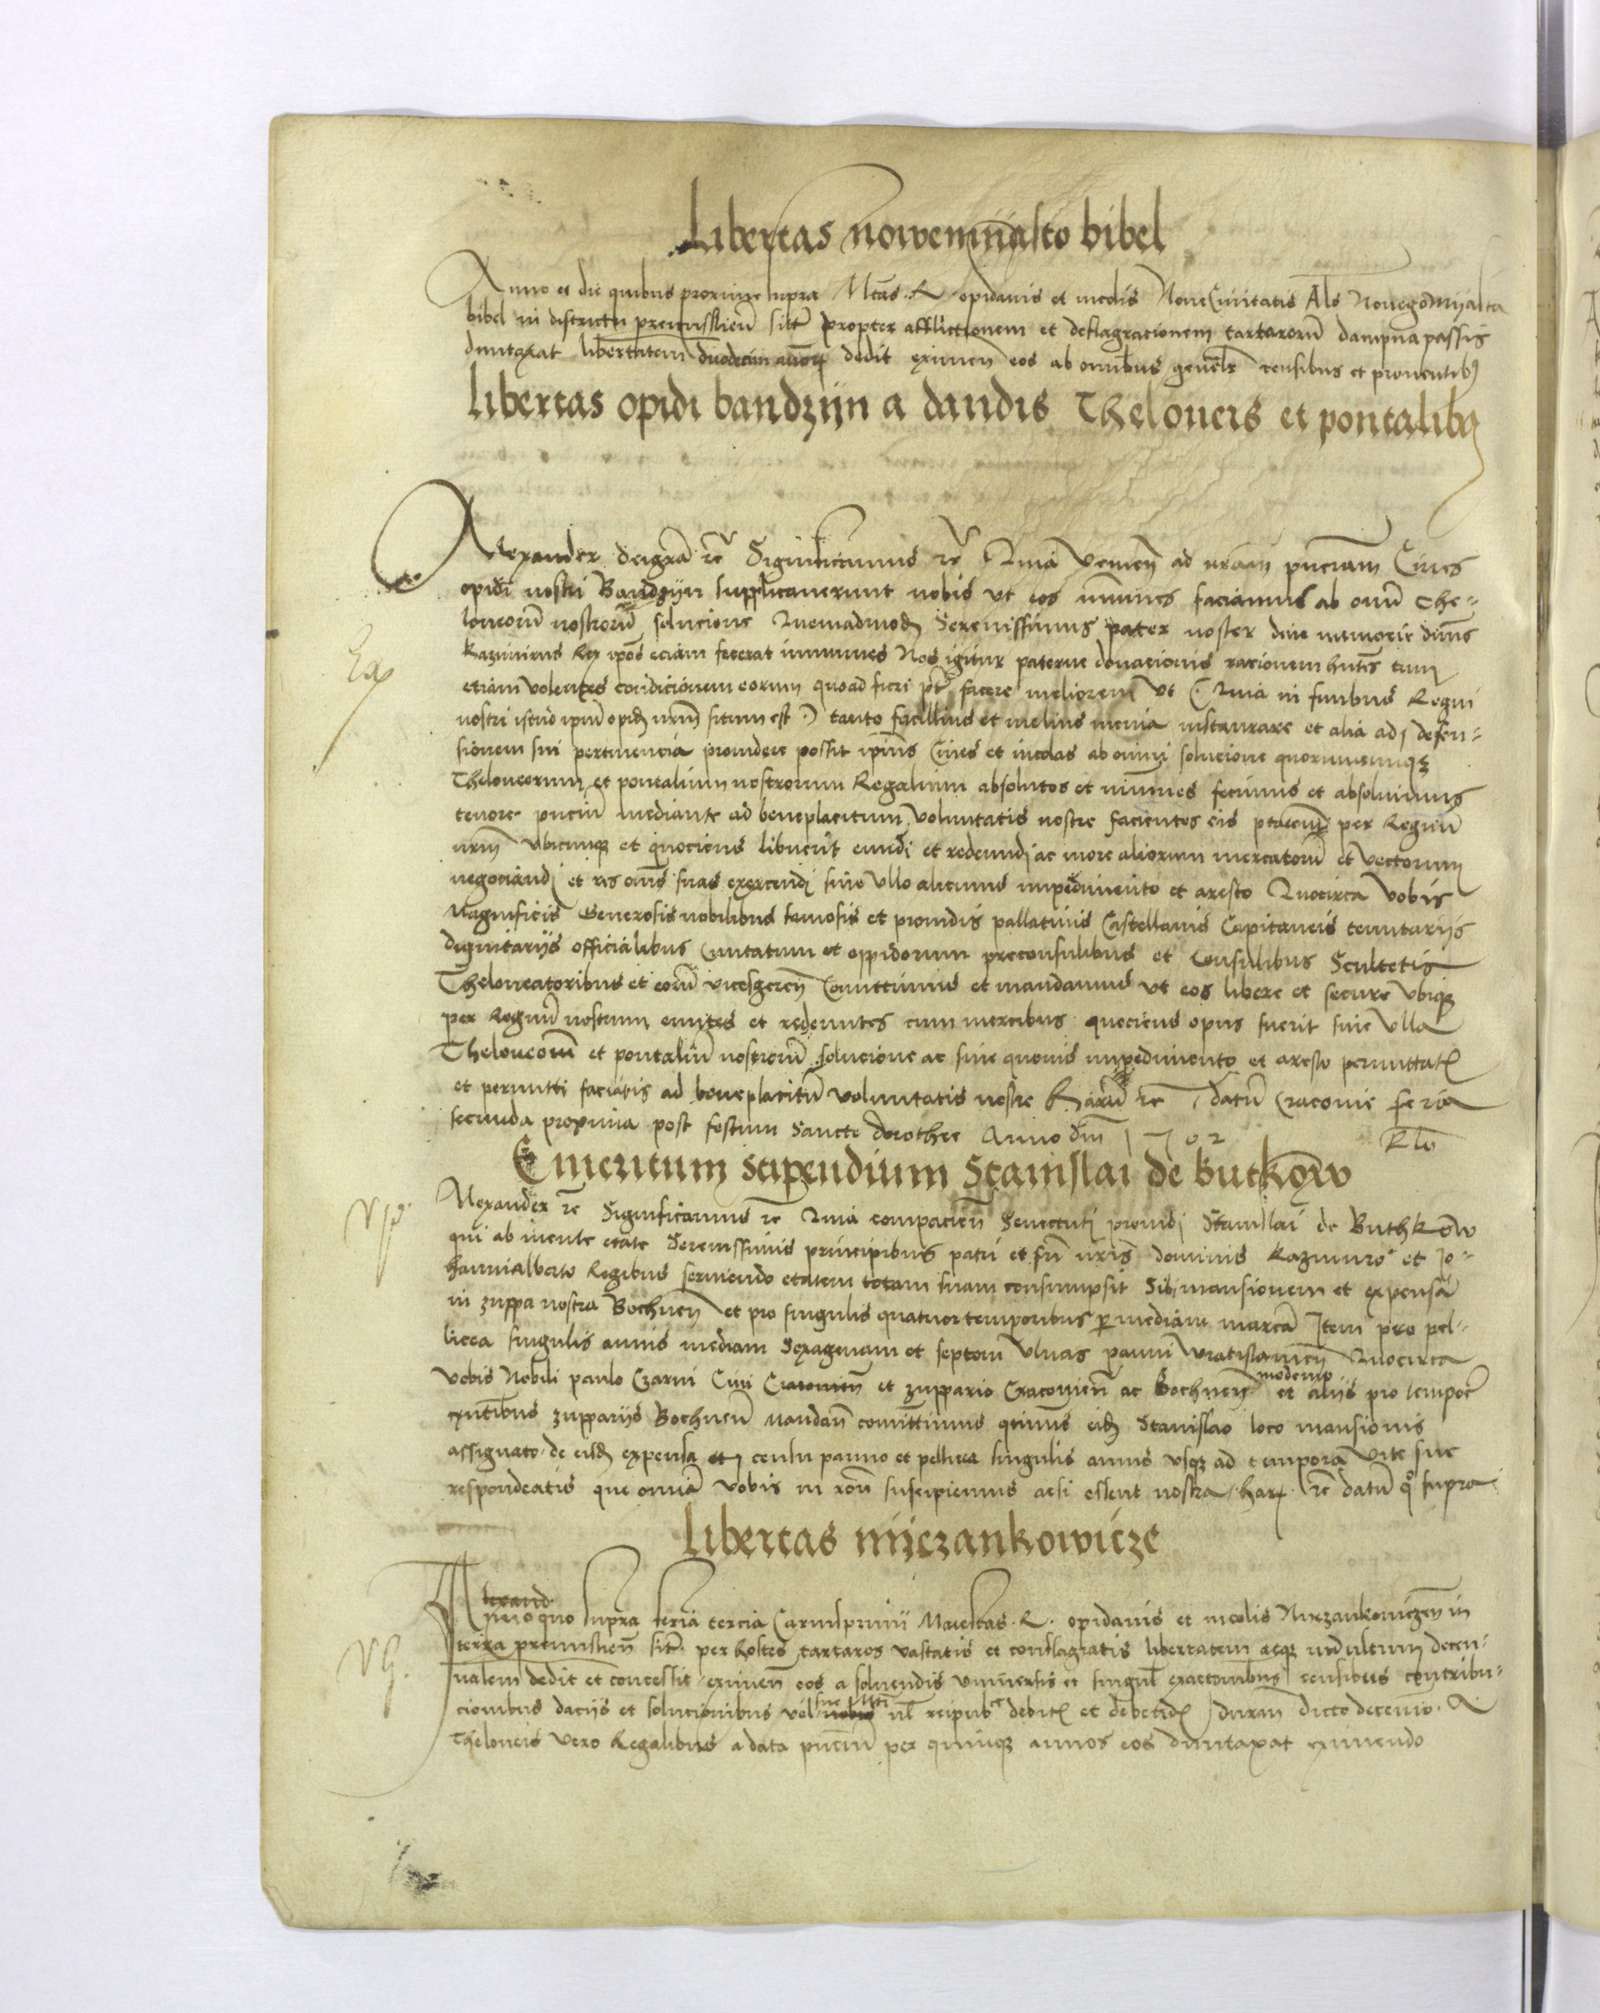 Libertas nowemiiasto bibel
Anno et die quibus proxime supra Mtas R opidanis et incolis Noue Ciuitatis Als Nouego Myasta
bibel in districtu premislien sitis propter afflictionem et deflagracionem tartarorum dampna passis
duntaxat libertatem duodecim annorum dedit eximen eos ab omnibus generalr censibus et prouentibus
libertas opidi bandzijn a dandis Theloneis et pontalibus
Alexander dei gra rc Significamus rc Quia Venien ad nram pnciam Ciues
opidi nostri Bandzijn supplicauerunt nobis vt eos immunes faciamus ab omni the-
loneorum nostrorum solucione Quemadmodum Serenissimus pater noster diue memorie dnus
Kazimirus Rex ipos eciam fecerat immunes Nos igitur paterne donacionis racionem hntes tum
etiam volentes condicionem eorum quoad fieri pt facere meliorem vt (Quia in finibus Regni
nostri istud ipum opidum nrm situm est) tanto facillius et melius menia instaurare et alia ad defen-
sionem sui pertinencia prouidere possit ipius Ciues et incolas ab omni solucione quorumcumque
Theloneorum et pontalium nostrorum Regalium absolutos et immunes fecimus et absoluimus
tenore pncium mediante ad beneplacitum voluntatis nostre facientes eis ptatem per Regnum
nrm vbicunque et quociens libuerit eundi et redeundi ac more aliorum mercatorum et vectorum
negociandi et res oms suas exercendi sine vllo alicuius impedimento et aresto Quocirca vobis
Magnificis Generosis nobilibus famosis et prouidis pallatinis Castellanis Capitaneis tenutarijs
dignitarijs officialibus Ciuitatum et oppidorum preconsulibus et consulibus Scultetis
Theloneatoribus et eorum vicesgeren Committimus et mandamus vt eos libere et secure vbique
per Regnum nostrum euntes et redeuntes cum mercibus quociens opus fuerit sine vlla
Theloneorum et pontalium nostrorum solucione ac sine quouis impedimento et aresto permittatis
et permitti faciatis ad beneplacitum voluntatis nostre Harum rc datum Cracouie feria
secunda proxima post festum Sancte dorothee Anno dm 1502
Emeritum stipendium Stanislai de butkow
Alexander rc Significamus rc Quia compacien Senectuti prouidi Stanislai de Buthkow
qui ab ineunte etate Serenissimis principibus patri et fri nris dominis Kazimiro et Jo-
hanni Alberto Regibus seruiendo etatem totam suam consumpsit Sibi mansionem et expensam
in zuppa nostra Bochnen et pro singulis quatuor temporibus per mediam marcam Item pro pel-
licea singulis annis mediam Sexagenam et septem vlnas panni wratislauien Quocirca
vobis Nobili paulo Czarni Ciui Cracouien et zuppario Cracouien ac Bochnen moderno et alijs pro tempore
exntibus zupparijs Bochnen Mandan committimus quatinus eidem Stanislao loco mansionis
assignato de eisdem expensa et censu panno et pellicea singulis annis vsque ad tempora vite sue
respondeatis que omnia vobis in ron suscipiemus acsi essent nostra har rc datum quo supra
libertas mijczankowicze
Anno quo supra feria tercia Carnispriuij Maiestas R opidanis et incolis Niczankowiczen in
terra premislien sitis per hostes tartaros vastatis et conflagratis libertatem aeque indultum decen-
nalem dedit et concessit eximen eos a soluendis vniuersis et singul exactionibus censibus contribu-
cionibus dacijs et solucionibus vel sue Mti vl reipub debitis et debetidis duran dicto decennio A
Theloneis vero Regalibus a data pncium per quinque annos eos duntaxat eximendo